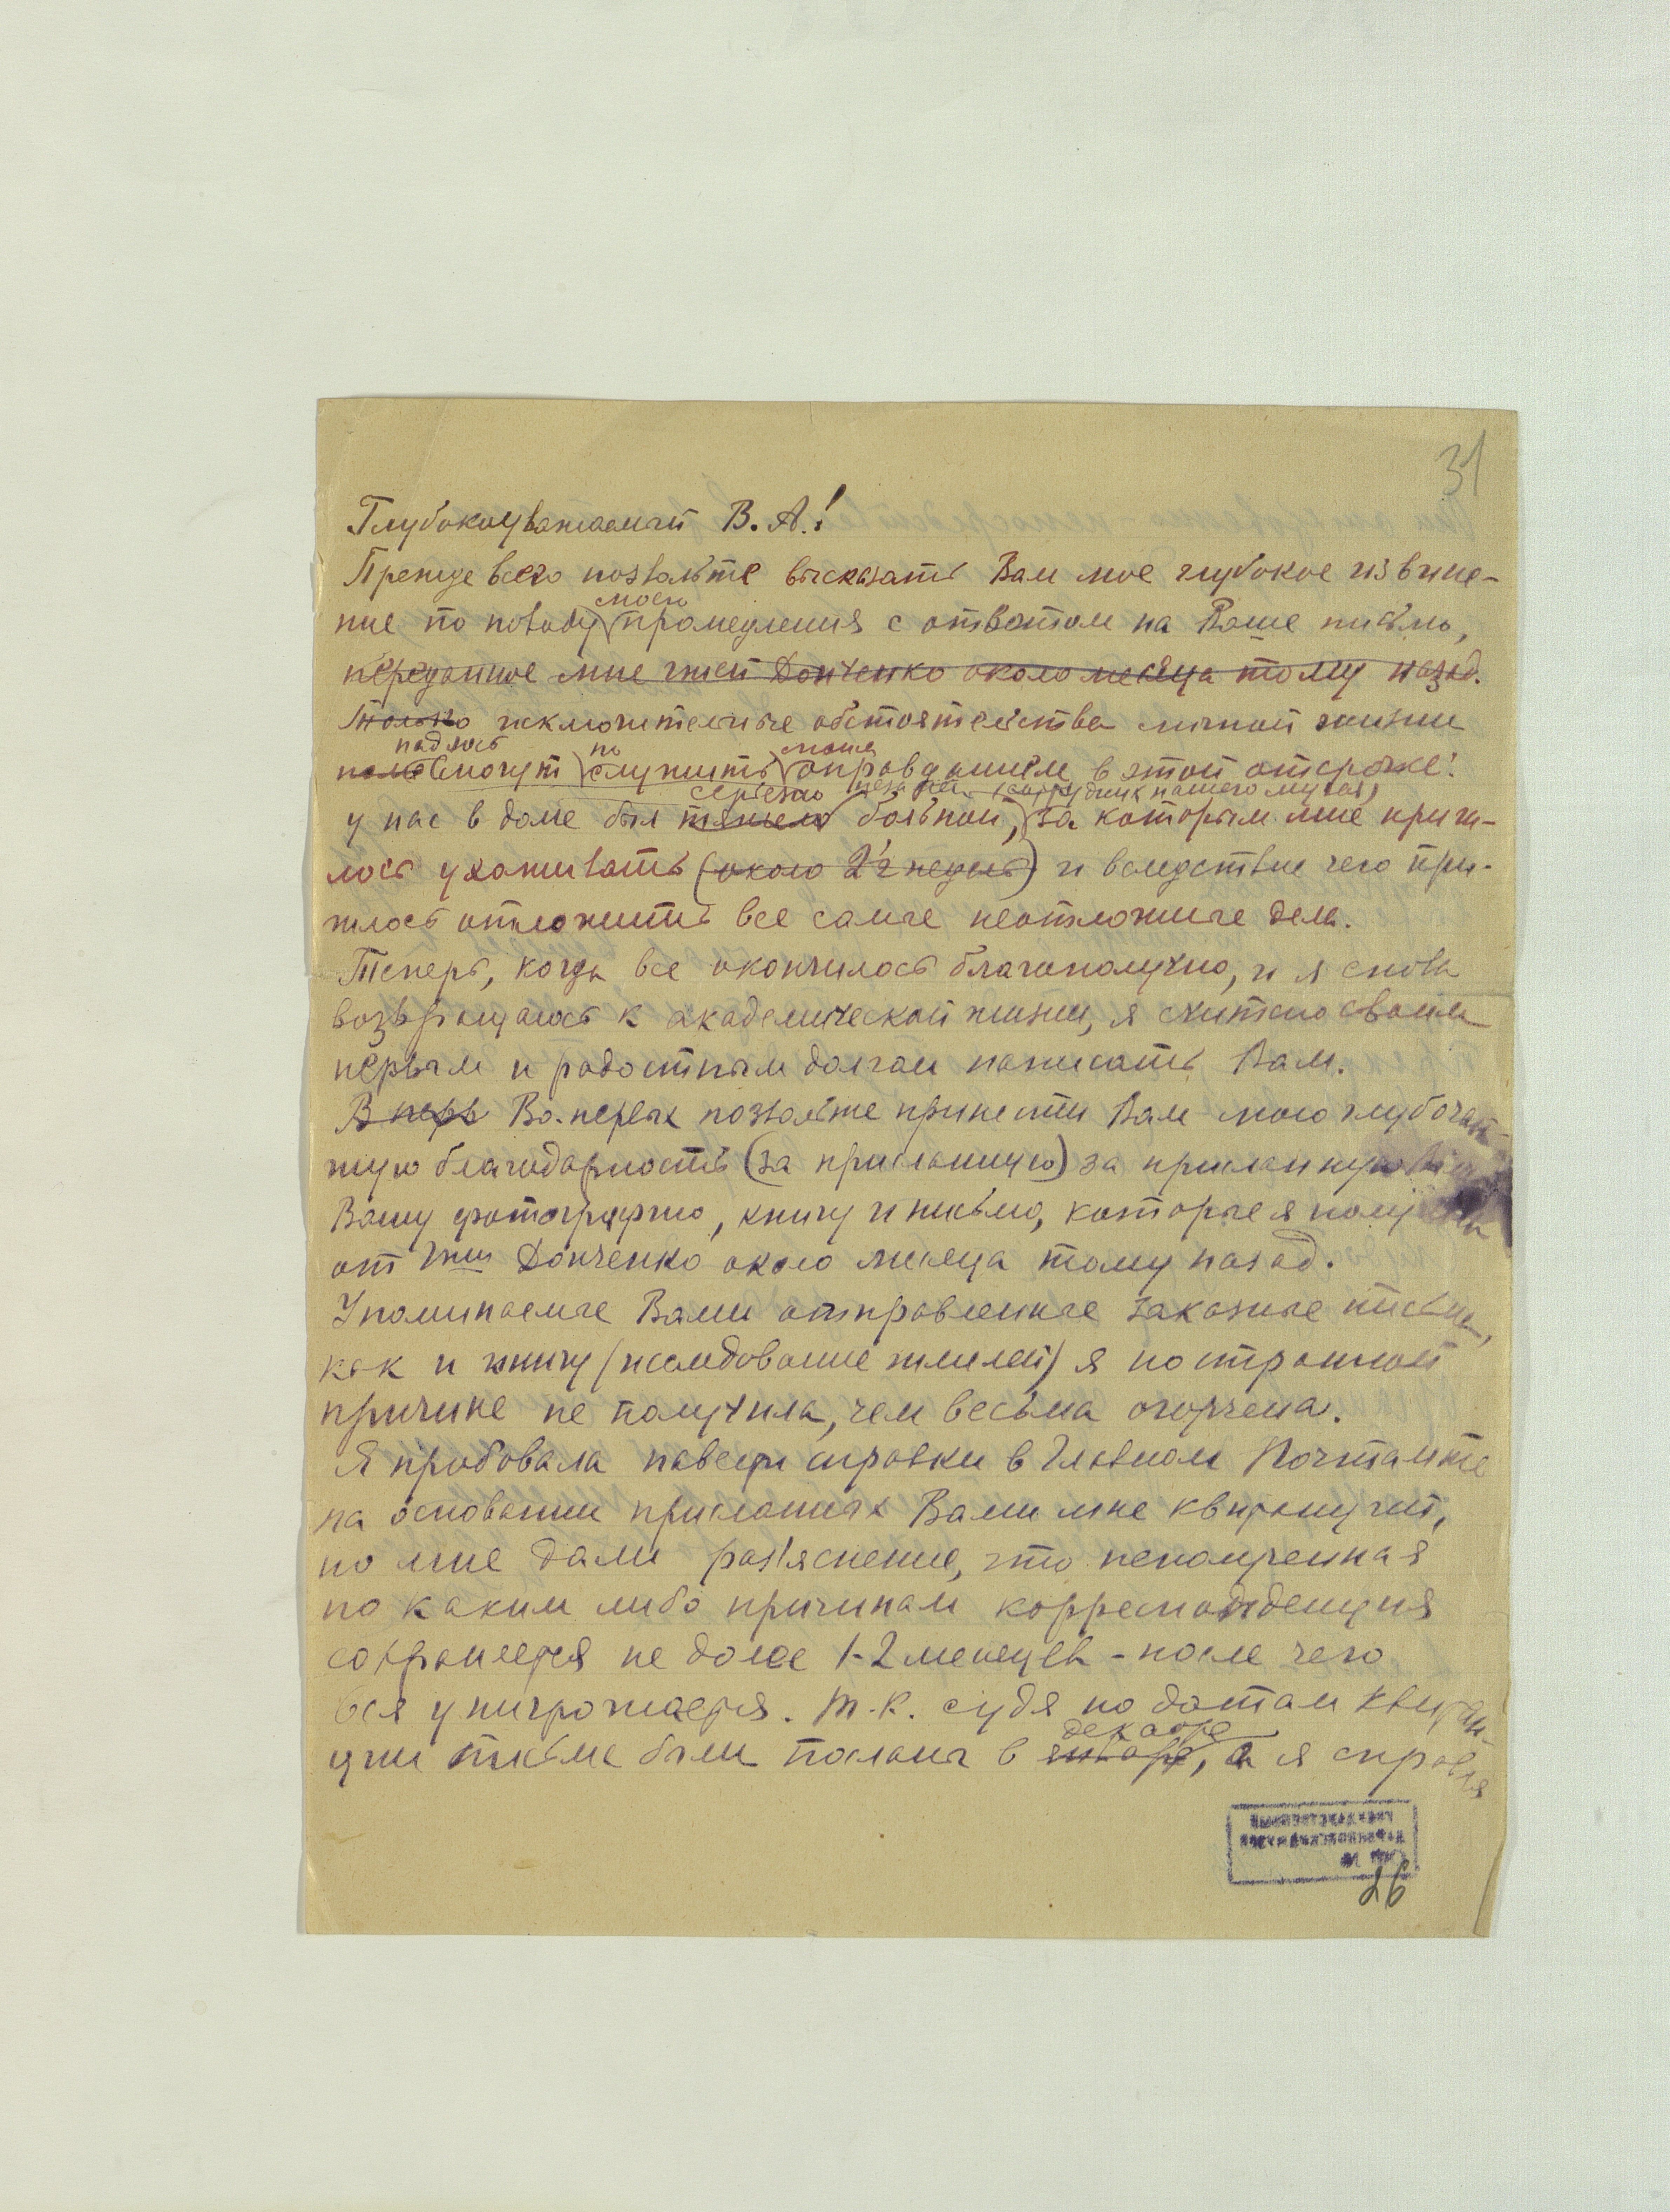 31
Глубокоуважаемый В. А.!
Прежде всего позвольте высказать Вам мое глубокое извине-
моего
ние по поводу промедления с ответом на Ваше письмо,
переданное мне г-жей Донченко около месяца тому назад.
Только исключительные обстоятельства личной жизни
надеюсь по моим
могут служить оправданием в этой отсрочке:
серьезно сотрудник нашего музея)
у нас в доме был тяжело больной, за которым мне приш-
лось ухаживать (около 2½ недель) и вследствие чего при-
шлось отложить все самые неотложные дела.
Теперь, когда все окончилось благополучно, и я снова
возвращаюсь к академической жизни, я считаю своим
первым и радостным долгом написать Вам.
В перв Во-первых позвольте принести Вам мою глубочай-
шую благодарность (за присланную) за присланную
Вашу фотографию, книгу и письмо, которые я получила
от г-жи Донченко около месяца тому назад.
Упоминаемые Вами отправленные заказные письма,
как и книгу (исследование шмелей) я по странной
причине не получила, чем весьма огорчена.
Я пробовала навести справки в Главном Почтамте
на основании присланных Вами мне квитанций,
но мне дали раз'яснение, что неполученная
по каким либо причинам корреспонденция
сохраняется не более 1-2 месяцев - после чего
вся уничтожается. Т.к. судя по датам квитан-
декабре
ции письма были посланы в январе, а я справля
26